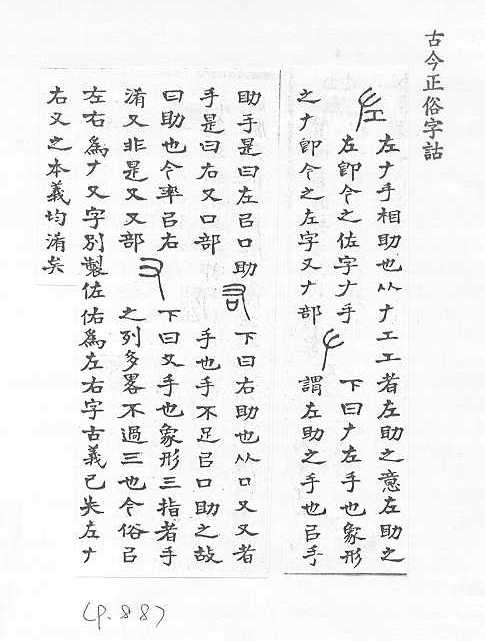 古今正俗字詁
左𠂇手相助也从𠂇工工者左助之意左助之
左卽今之佐字𠂇手 下曰𠂇左手也象形
之𠂇卽今之左字又𠂇部 謂左助之手也㠯手
助手是曰左㠯口助 右 下曰右助也从口又又者
手是曰右又口部 手也手不足㠯口助之故
曰助也今率㠯右 又 下曰又手也象形三指者手
淆又非是又又部 之列多畧不過三也今俗㠯
左右爲𠂇又字別製佐佑爲左右字古義已失左𠂇
右又之本義均淆矣
(P.88)